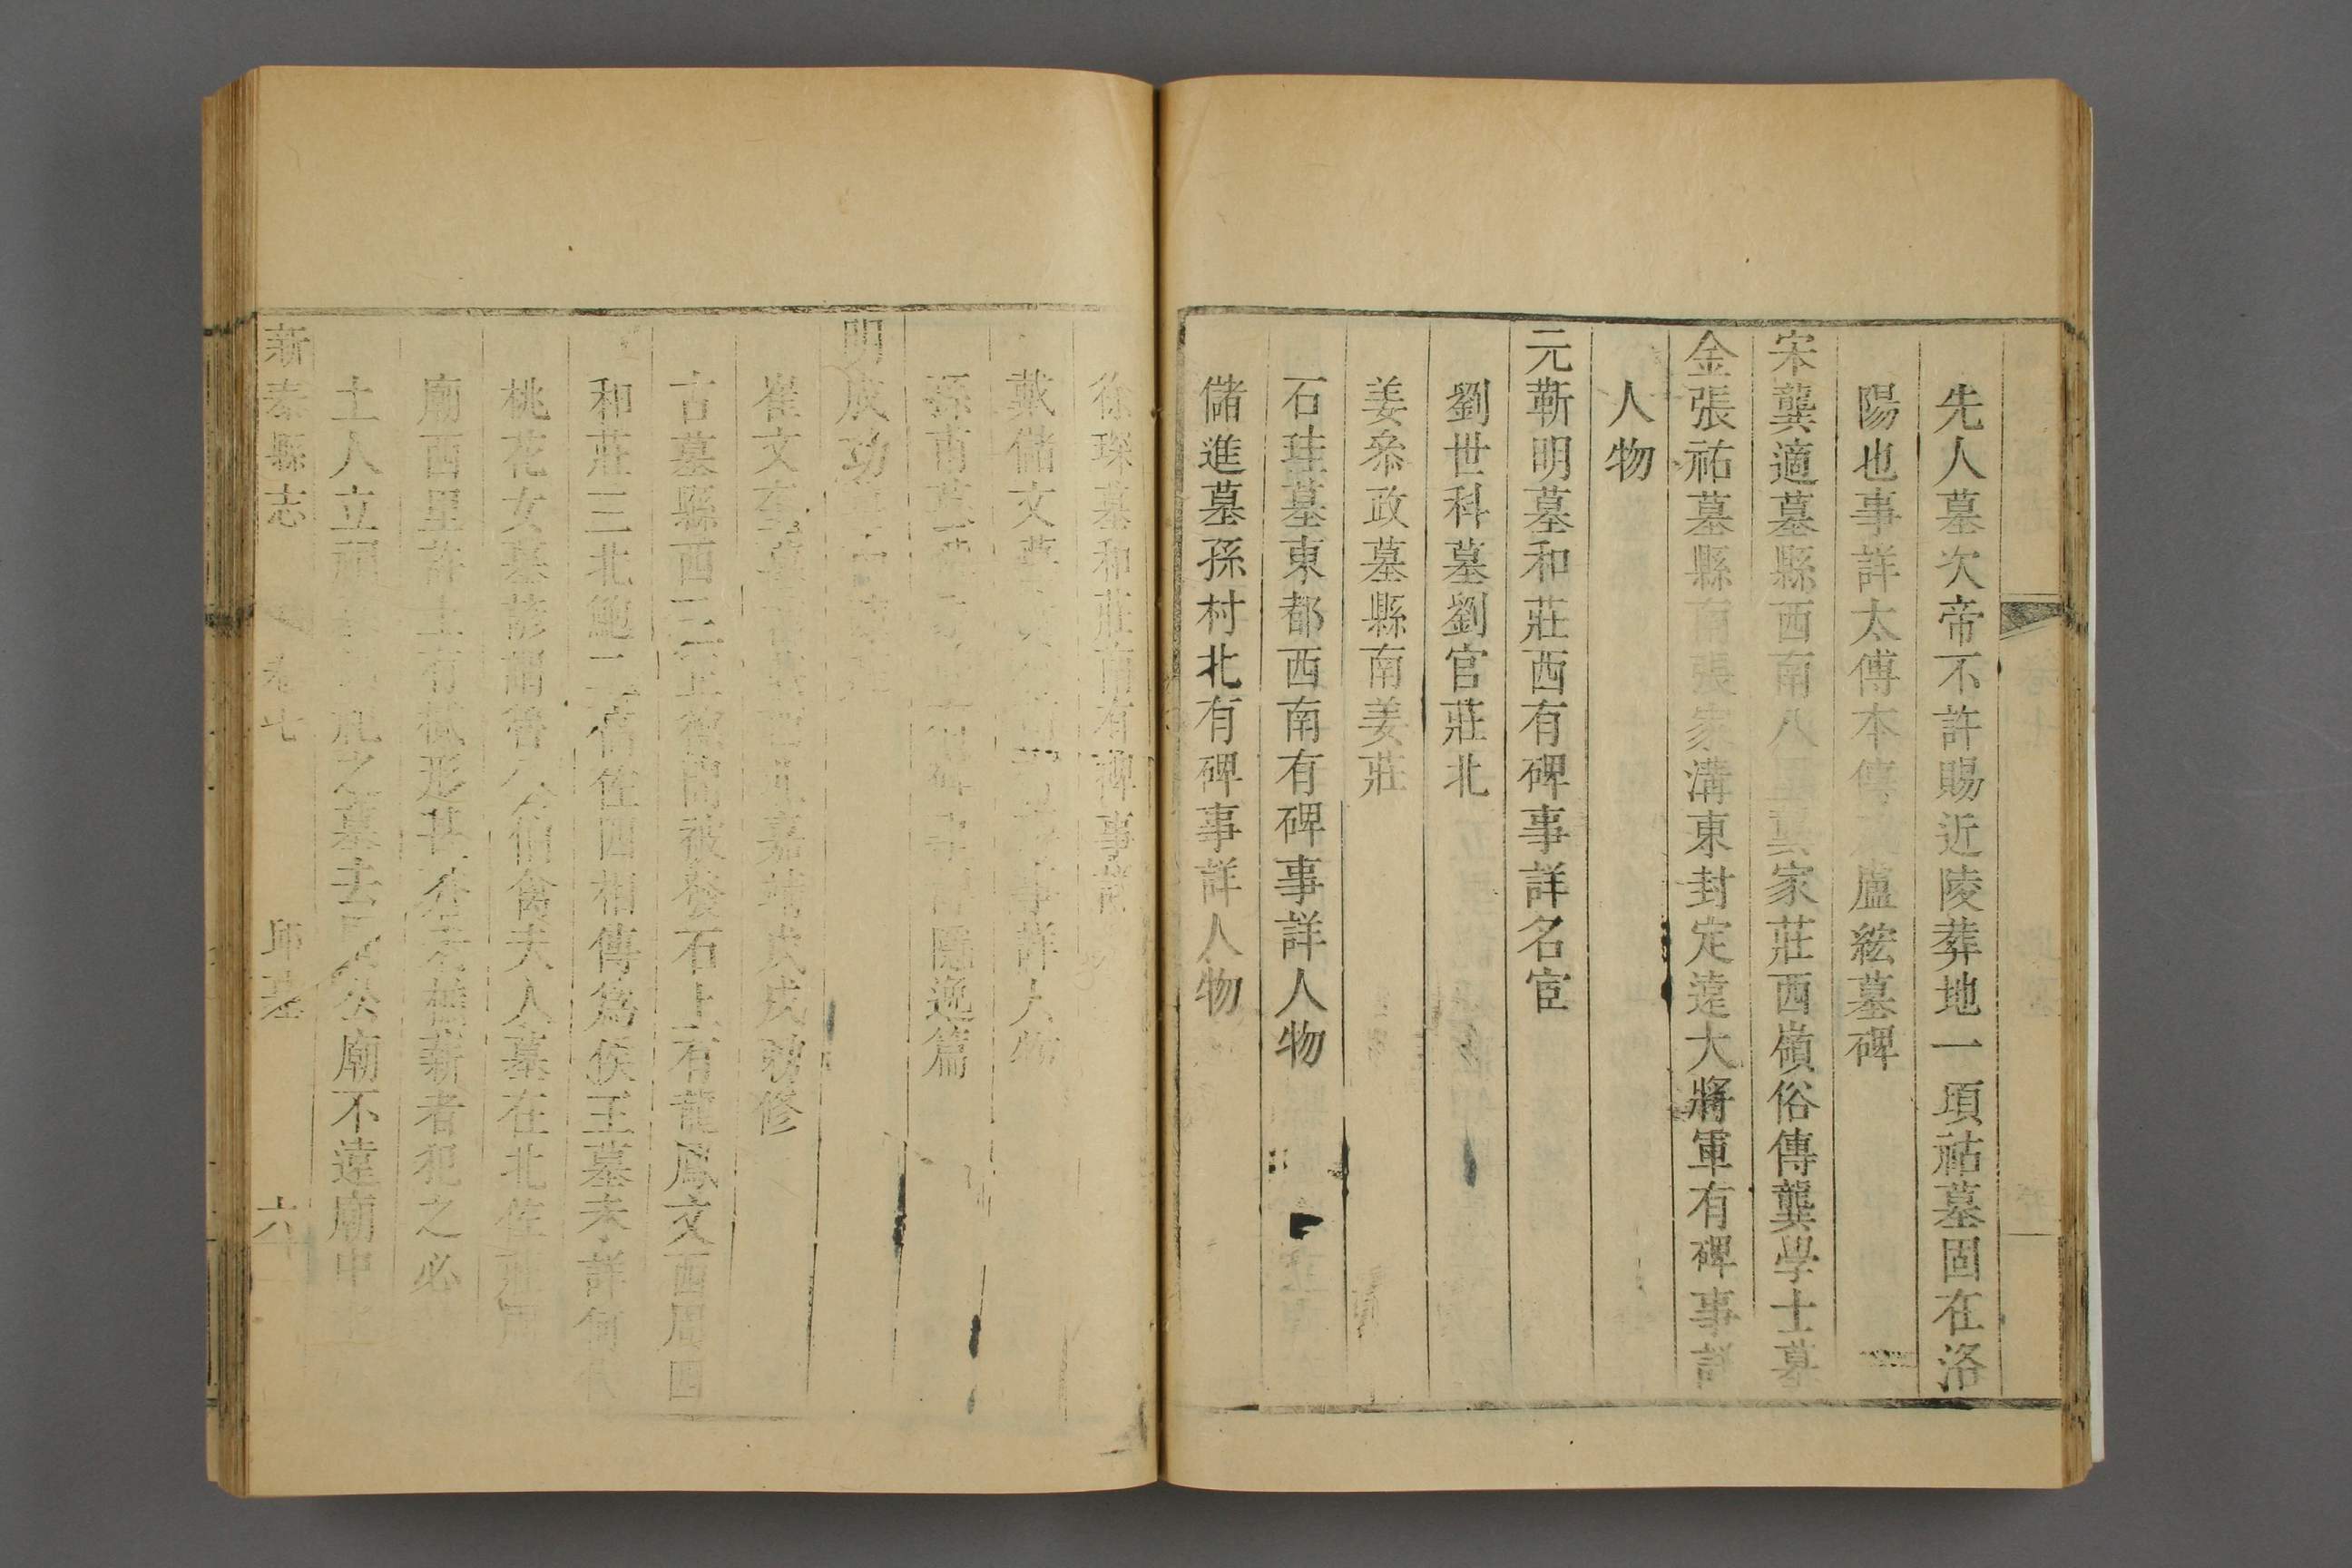 先人墓次帝不許賜近陵葬地一項祜墓固在洛
陽也事詳太傅本傳盧綋墓碑
宋龔適墓縣西南八里龔家莊西嶺俗傳龔學士墓
金張祐墓縣南張家溝東封定遠大將軍有碑事詳
人物
元靳明墓和莊西有碑事詳名宦
劉世科墓劉官莊北
姜叅政墓縣南姜莊
石珪墓東都西南有碑事詳人物
儲進墓孫村北有碑事詳人物
徐琛墓和莊南有碑事詳
戴儲文墓事詳人物
孫甫墓隱逸篇
明成功
崔文奎墓嘉靖戊戌勅修
古墓縣西三里德間被發石上有龍鳳文西周四
和莊三北鮑二萬侄四相傳爲侯王墓未詳何代
桃花女墓諺謂魯人伯禽夫人墓在北侄莊周
廟西里許上有形甚樵薪者犯之必
土人立祠祀之墓去周公廟不遠廟中
新泰縣志 卷七 邱墓 六